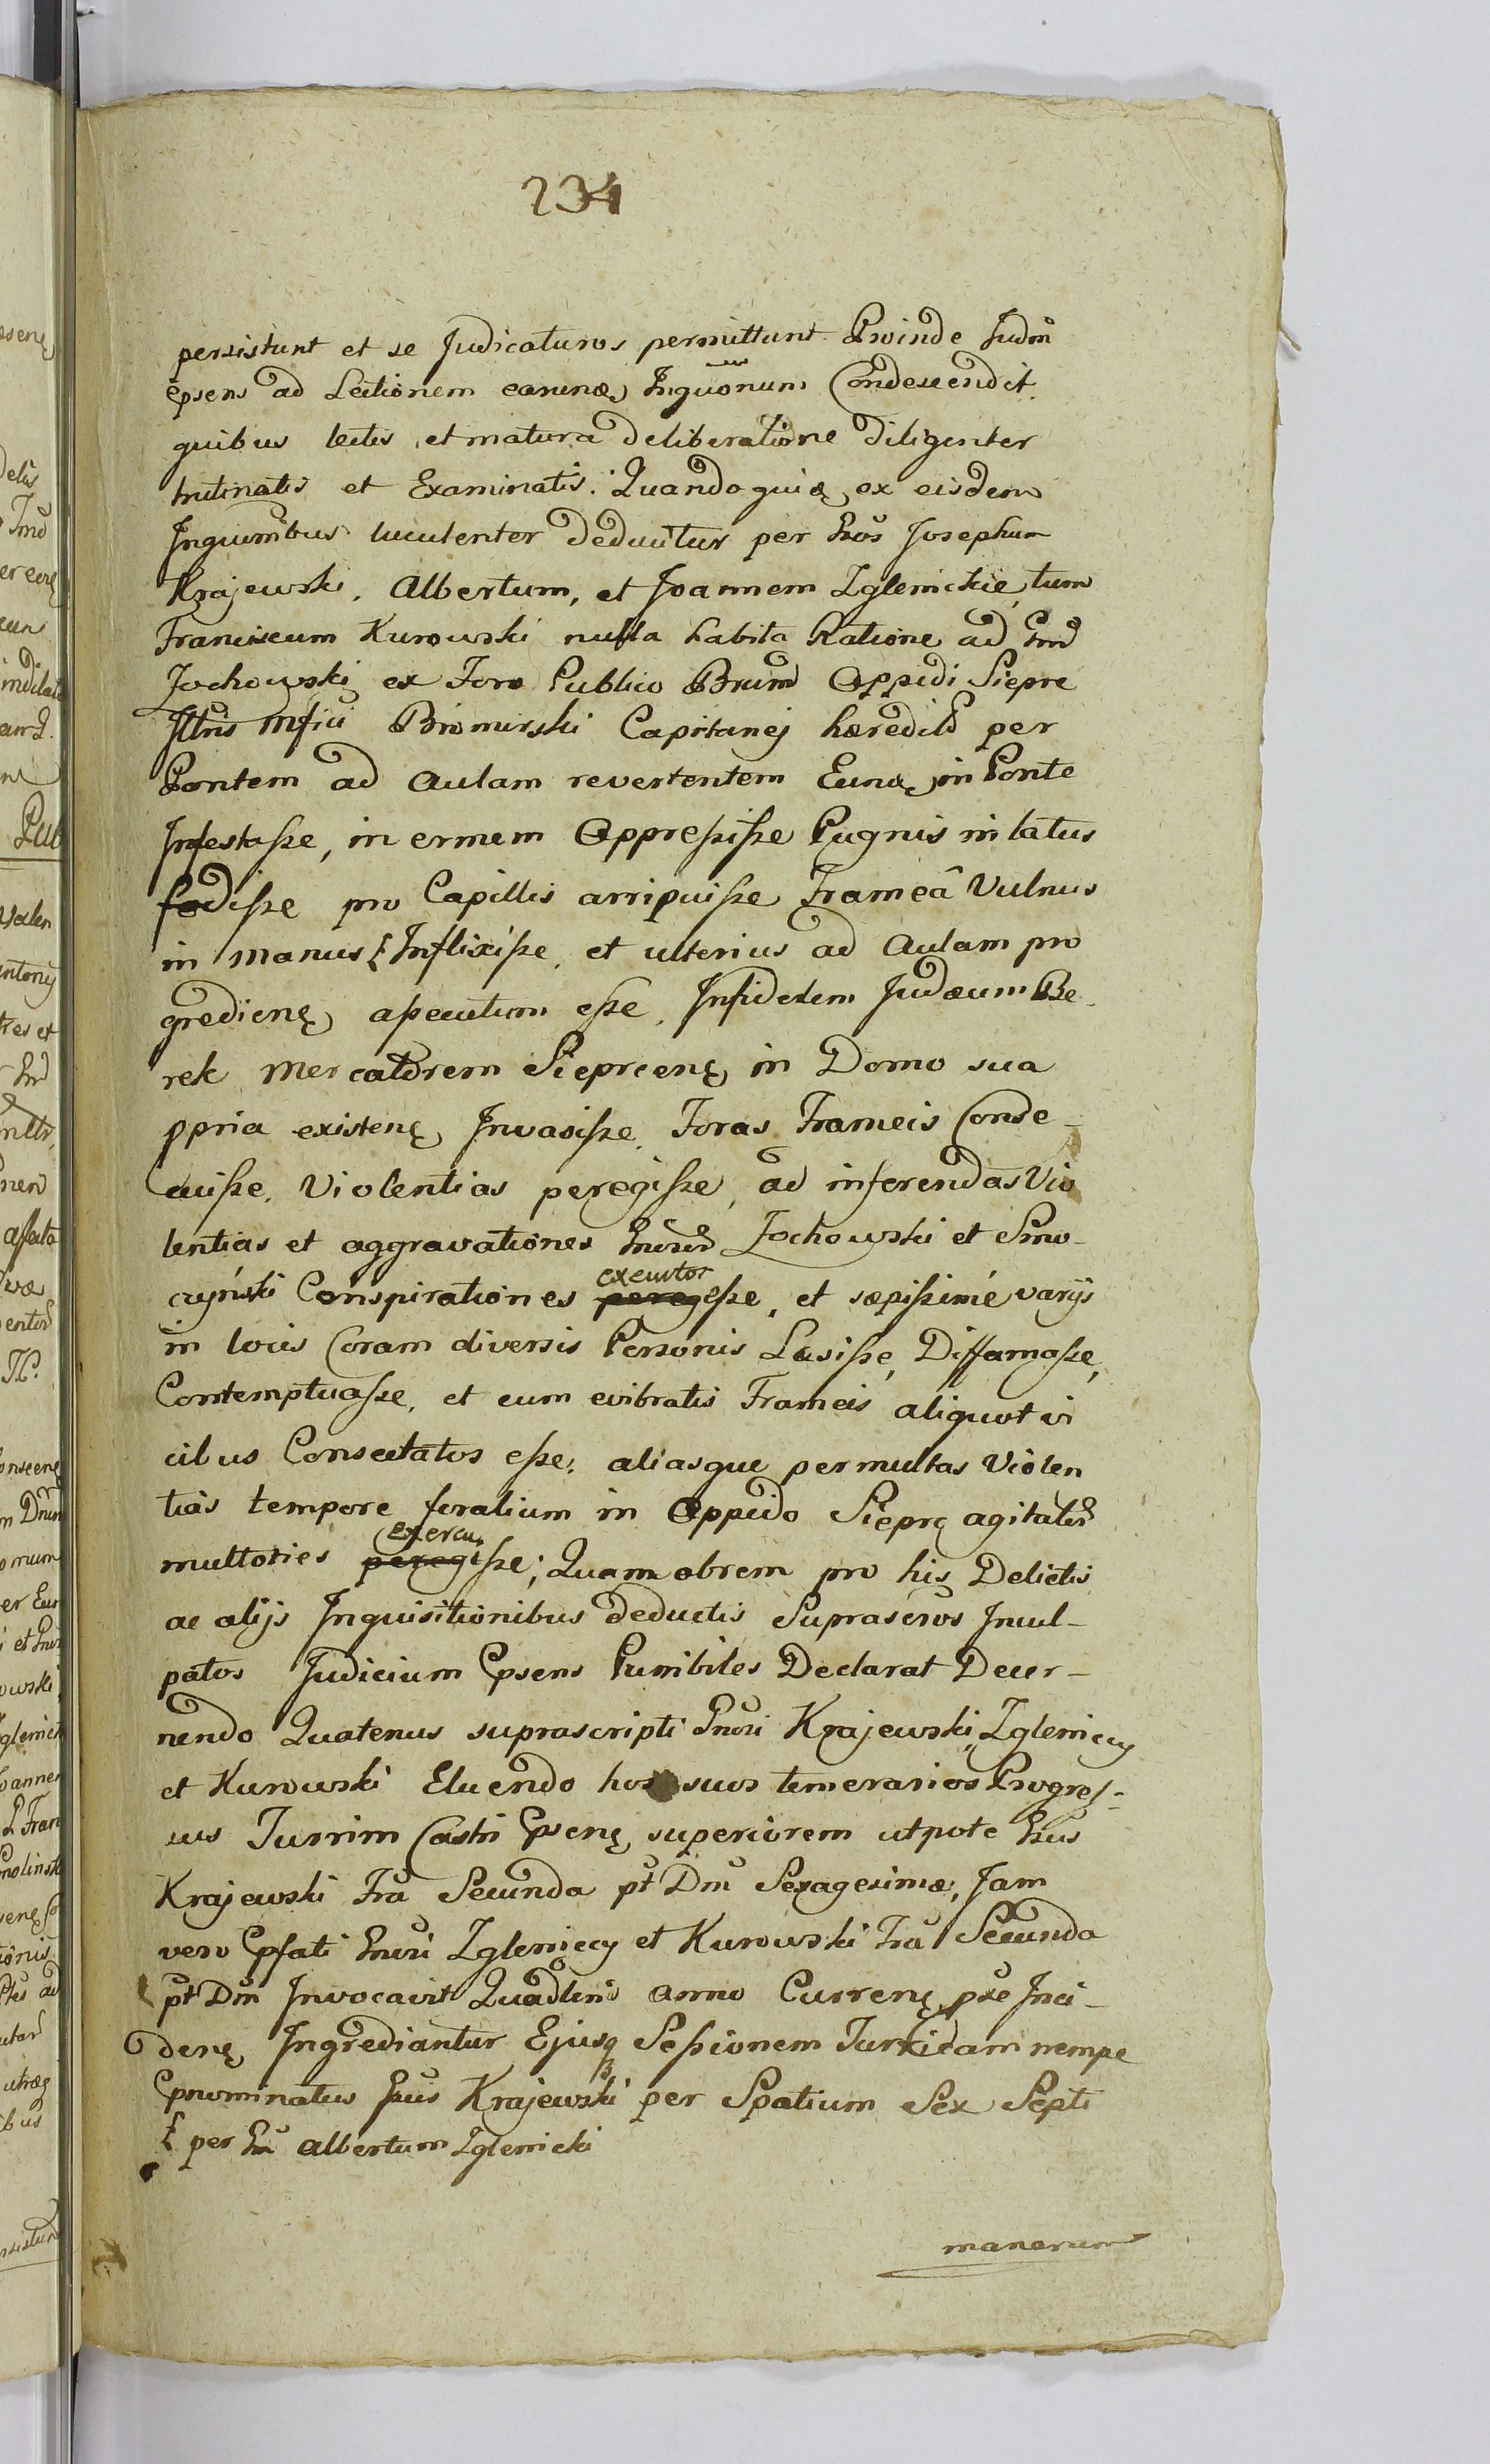 234
persistunt et se Judicaturos permittunt Proinde Judm
epsens ad Lectionem earundem Inquonum Condescendit.
quibus lectis et matura deliberatione diligenter
trutinatis et Examinatis. Quandoquidem ex eisdem
Inquionibus luculenter deducitur per Gsos Josephum
Krajewski, Albertum, et Joannem Zglenickie, tum
Franciscum Kurowski nulla habita Ratione ad Gnd
Zochowski ex Foro Publico Brumd Oppidi Siepre
Illris Mfici Bromirski Capitanej hæredild per
Pontem ad Aulam revertentem Eundem in Ponte
Infestaſse, in ermem Oppreſsiſse Pugnis in latus
fodiſse pro Capillis arripuiſse Frameâ Vulnus
in Manus Inflixiſse, et ulterius ad Aulam pro
gredieneṃ aſsecutum eſse, Infidelem Judæum Be-
rek Mercatorem Sieprcenę in Domo sua
ppria existenę Invasiſse, Foras Frameis Conse-
cuiſse, Violentias peregiſse, ad inferendas Vio
lentias et aggravationes Gnosrd Zochowski et Smo-
czyński Conspirationes executos eſse, et sæpiſsimé varijs
in locis Coram diversis Personis Læsiſse, Diffamaſse,
Contemptuaſse, et eum evibratis Frameis aliquot vi
cibus Consectatos eſse, aliasque permultas Violen
tias tempore foralium in Oppido Siepre agitatis
multoties Exercuiſse; Quam obrem pro his Delictis
ac alijs Inquisitionibus deductis Suprascros Incul-
patos Judicium Epsens Punibiles Declarat Decer-
nendo Quatenus suprascripti Gnosi Krajewski, Zgleniccy
et Kurowski Eluendo hos suos temerarios Progreſ-
sus Turrim Castri Epsenę superiorem utpote Gsus
Krajewski Fria Secunda pt Dm Sexagesimæ, Jam
vero Epfati Gnosi Zgleniccy et Kurowski Fria Secunda
pt Dm Invocavit Quadlem anno Currenę pxe Inci-
denę Ingrediantur Ejusq Seſsionem Turricam nempe
Epnominatus Gsus Krajewski per Spatium Sex Septi
per Gn Albertum Zglenicki
manarum